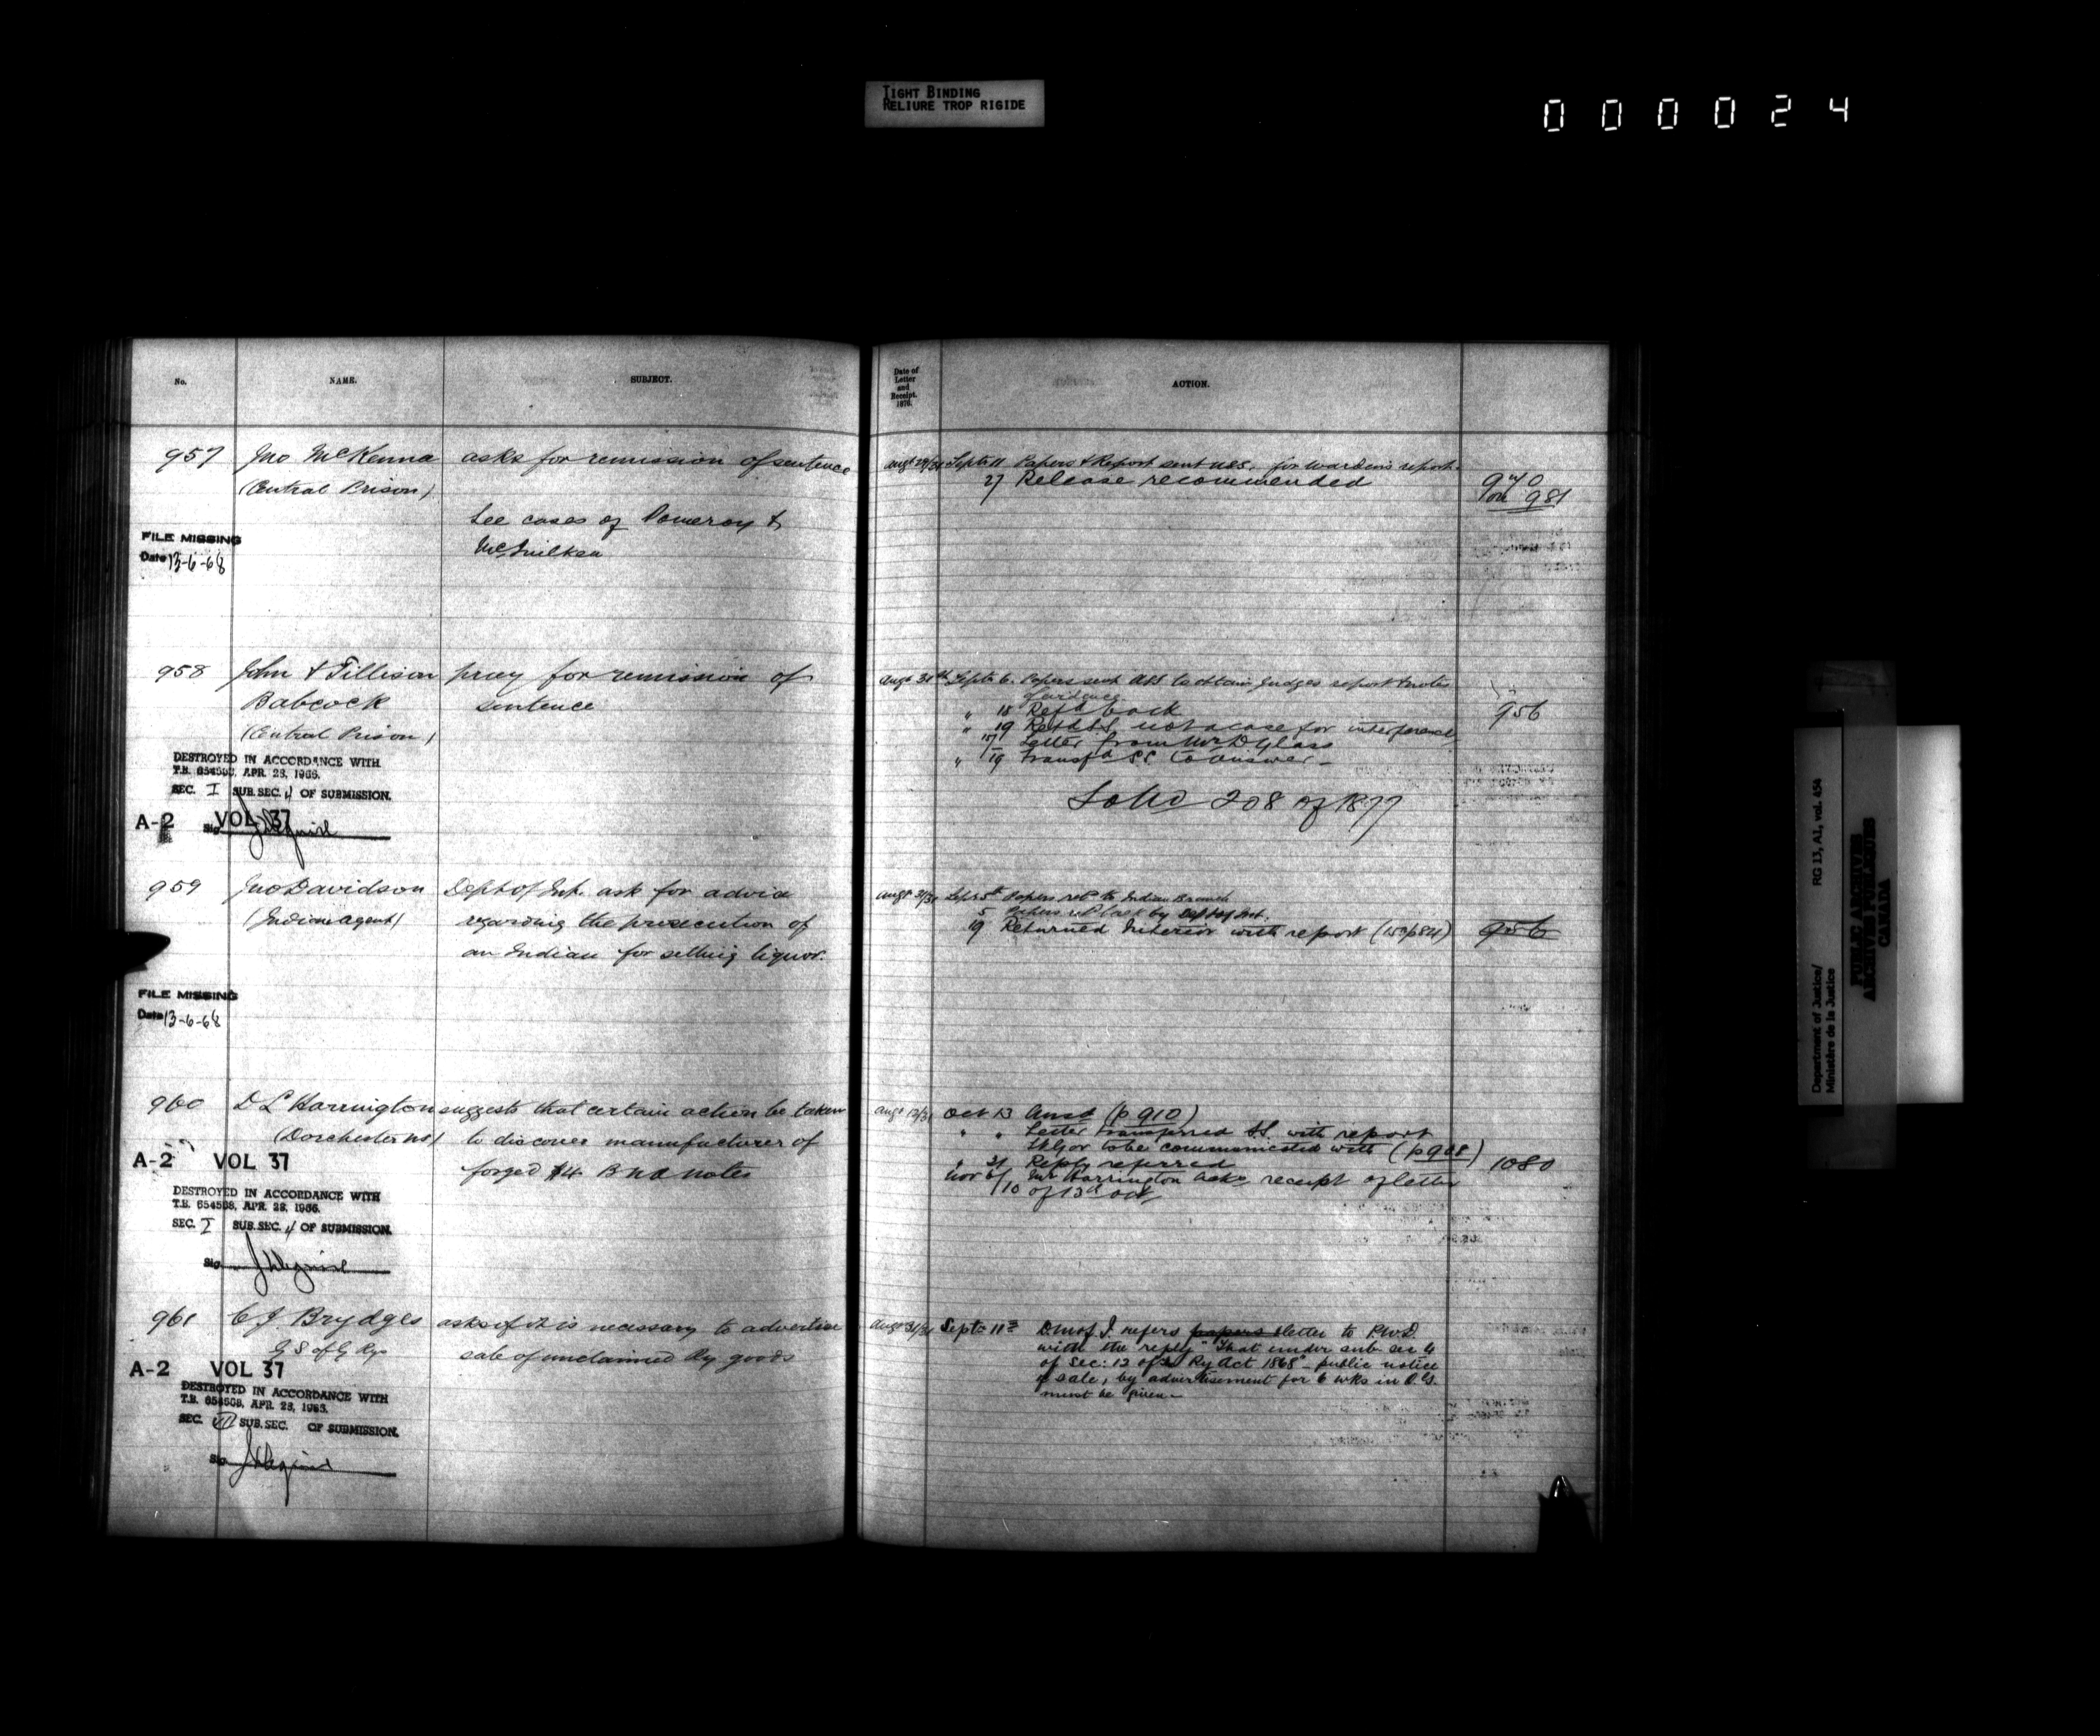 TIGHT BINDING
RELIURE TROP RIGIDE
000024
No.
NAME.
SUBJECT.
Date of
Letter
and
Receipt.
1876.
ACTION.
957 Jno McKenna asks for remission of sentence
(Central Prison)
See cases of Pomeroy &
FILE MISSING
Date 13-6-68
Augt 29/31 Septr 11 Papers & Report sent USS. for Warden's report.
27 Release recommended
940
on 981
958 John & Tillison pray for remission of
Babcock sentence
(Central Prison)
DESTROYED IN ACCORDANCE WITH
T.B. 654508, APR. 28, 1966.
SEC. I SUB. SEC. 4 OF SUBMISSION.
A-2 VOL 37
Sig
Augt 31st Septr 6. Papers sent USS to obtain Judges report & notes
Evidence
" 18 Refd back
" 19 Retd SS not a case for interference
15/ Letter from Mr D. Glass
" 19 Transfd SS to answer
956
208 of 1877
959 Jno Davidson Dept of Int. ask for advice
(Indian agent) regarding the prosecution of
an Indian for selling liquor.
FILE MISSING
Date 13-6-68
Augt 31/31 Sepr 5th Papers refd to Indian Branch
5 Papers refd back by Dept of Int.
19 Returned Interior with report (153/p84)
956
960 D L Harrington suggests that certain action be taken
(Dorchester NS) to discover manufacturer of
forged $4 B N A notes
A-2 VOL 37
DESTROYED IN ACCORDANCE WITH
T.B. 654508, APR. 28, 1966.
SEC. I SUB. SEC. 4 OF SUBMISSION.
Sig
Augt 12/31 Oct 13 Ansd (p 910)
" " Letter transferred SS. with report
to be communicated with (p 908)
" 21 Reply referred
Nov 6/10 Mr Harrington acks receipt of letter
of 13th Oct
1080
961 C J Brydges asks if it is necessary to advertise
G S of G Rys sale of unclaimed Ry goods
A-2 VOL 37
DESTROYED IN ACCORDANCE WITH
T.B. 654508, APR. 28, 1966.
SEC. VII SUB. SEC. OF SUBMISSION.
Sig
Augt 31/31 Septr 11 D.M of J. refers papers letter to P.W.D.
with the reply "That under sub sec 4
of sec: 12 of Ry Act 1868" public notice
of sale, by advertisement for 6 wks in O.G.
must be given
Department of Justice/
Ministère de la Justice
RG 13, A1, vol. 454
PUBLIC ARCHIVES
ARCHIVES PUBLIQUES
CANADA